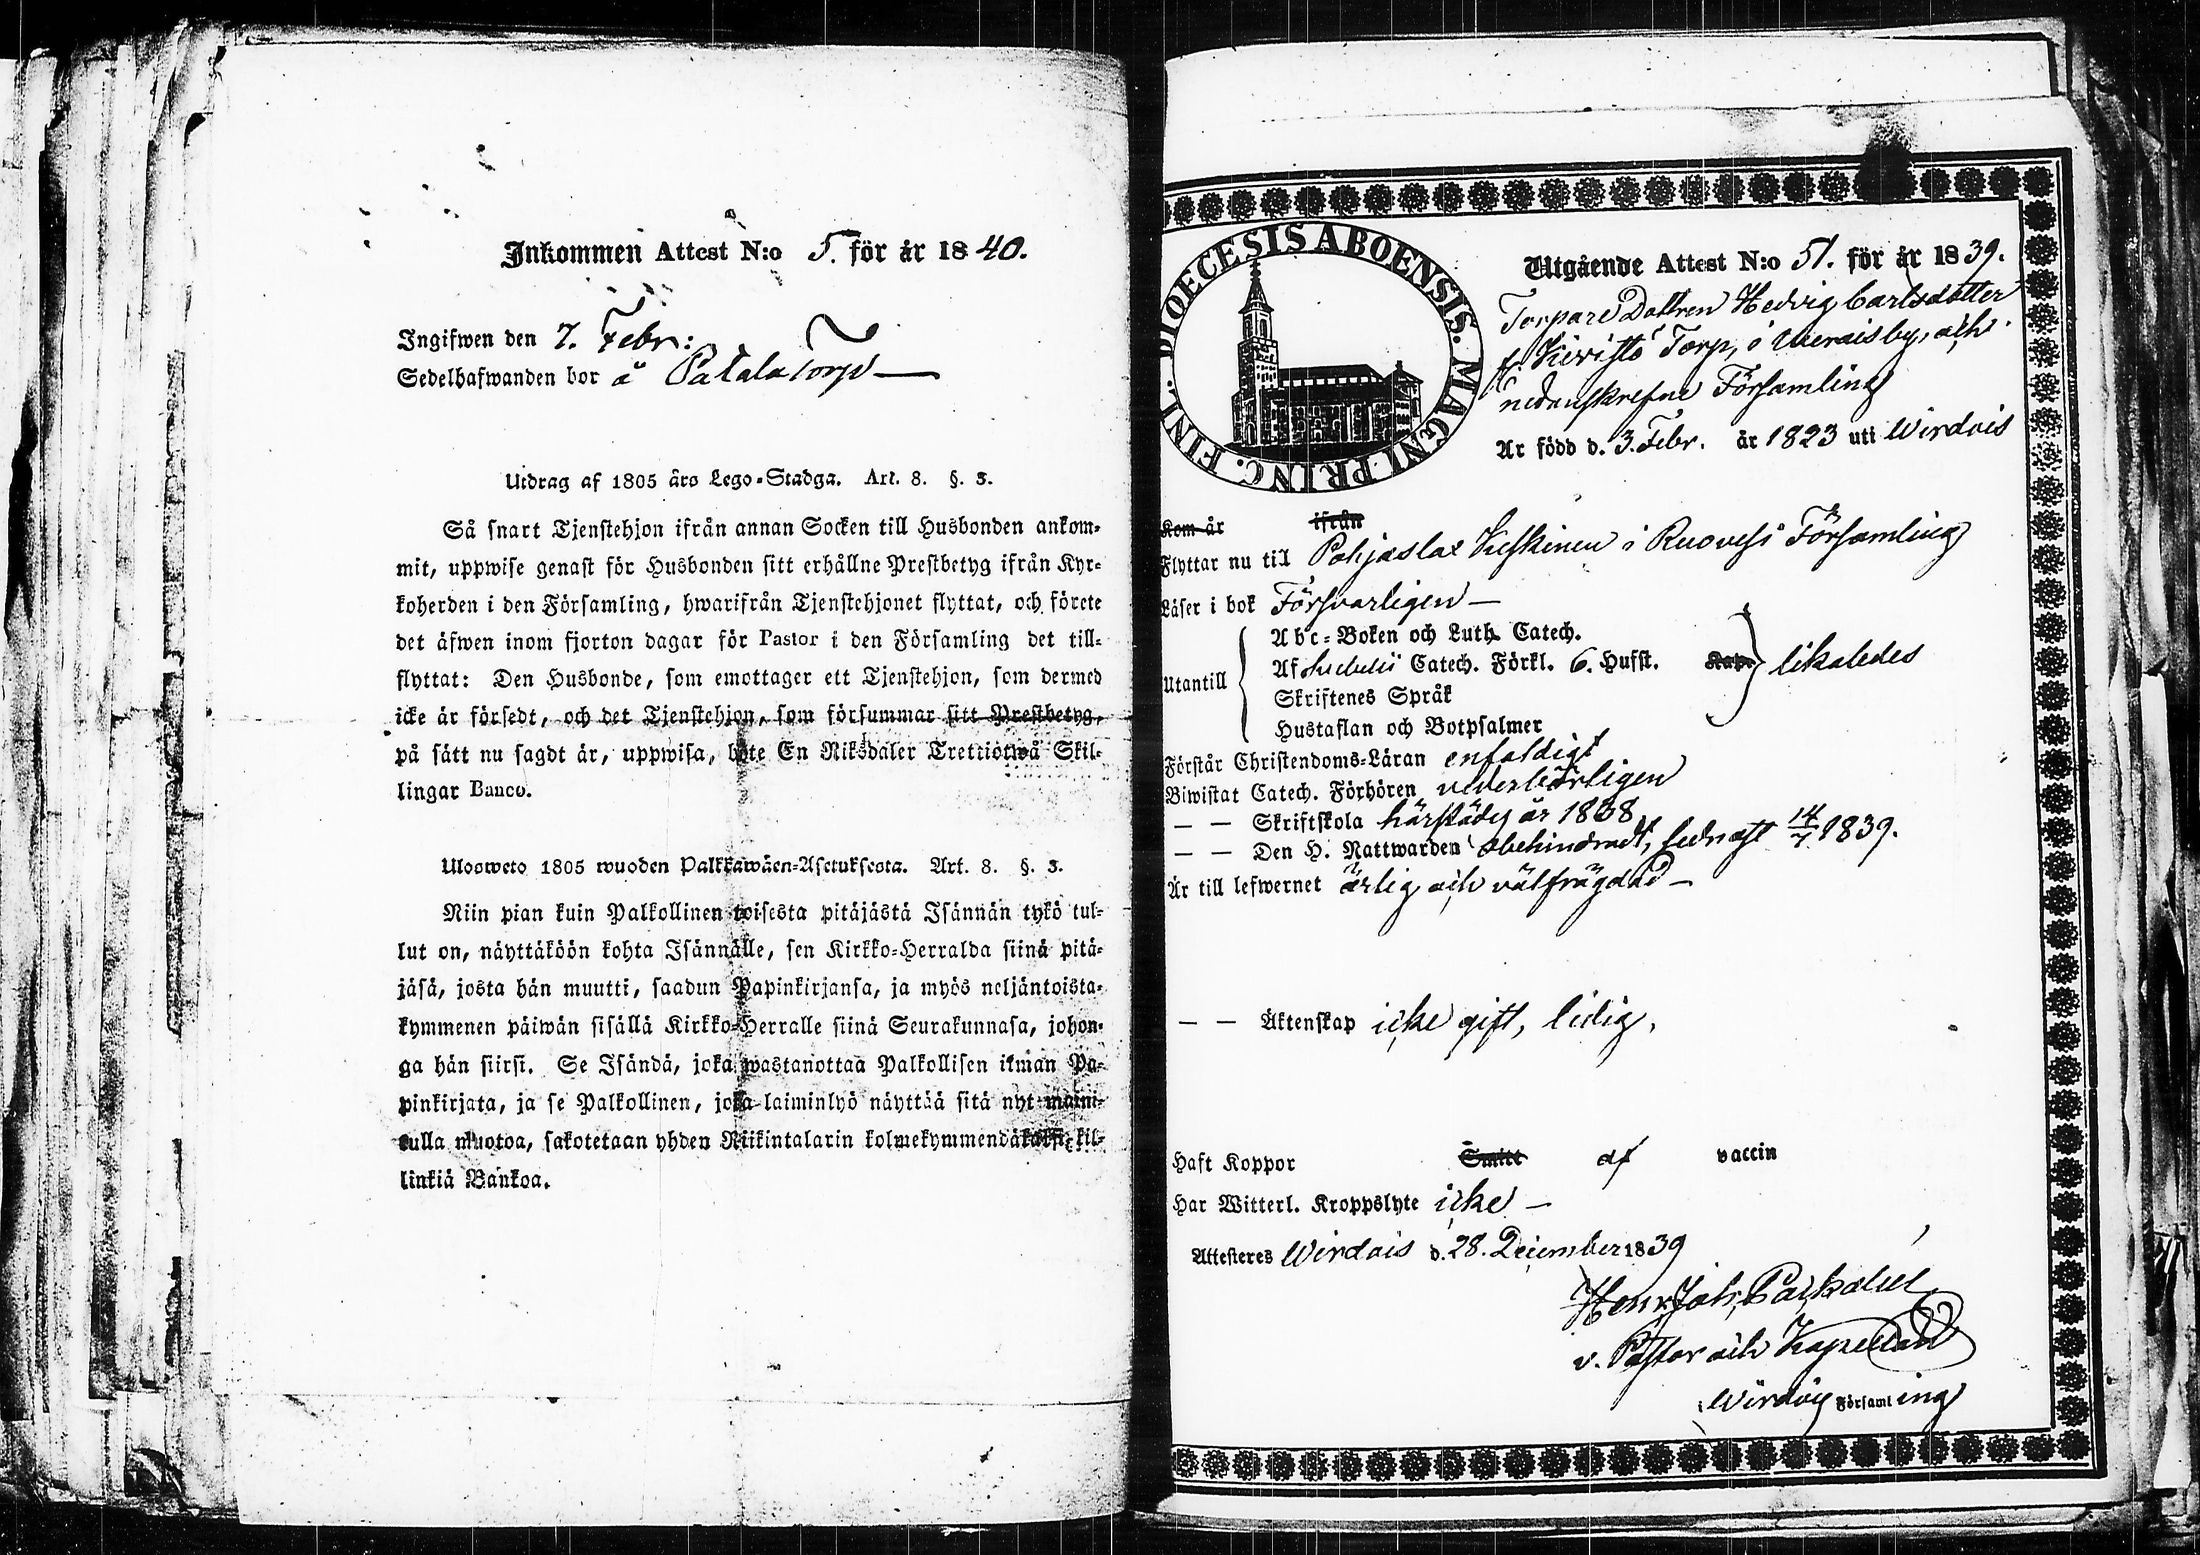 Inkommen Attest N:o 5. för år 1840.
Ingifwen den 7. Febr:
Sedelhafwanden bor å Patala Torp —
Utdrag af 1805 års Lego-Stadga. Art. 8. §. 3.
Så snart Tjenstehjon ifrån annan Socken till Husbonden ankom-
mit, uppwise genast för Husbonden sitt erhållne Prestbetyg ifrån Kyr-
koherden i den Församling, hwarifrån Tjenstehjonet flyttat, och förete
det äfwen inom fjorton dagar för Pastor i den Församling det till-
flyttat: Den Husbonde, som emottager ett Tjenstehjon, som dermed
icke är försedt, och det Tjenstehjon, som försummar sitt Prestbetyg,
på sätt nu sagdt är, uppwisa, böte En Riksdaler Trettiotwå Skil-
lingar Banco.
Ulosweto 1805 wuoden Palkkawäen-Asetuksesta. Art. 8. §. 3.
Niin pian kuin Palkollinen toisesta pitäjästä Isännän tykö tul-
lut on, näyttäköön kohta Isännälle, sen Kirkko-Herralda siinä pitä-
jäsä, josta hän muutti, saadun Papinkirjansa, ja myös neljäntoista-
kymmenen päiwän sisällä Kirkko-Herralle siinä Seurakunnasa, johon-
ga hän siirsi. Se Isändä, joka wastanottaa Palkollisen ilman Pa-
pinkirjata, ja se Palkollinen, joka laiminlyö näyttää sitä nyt maini-
tulla muotoa, sakotetaan yhden Riikintalarin kolmekymmendäkaksi kil-
linkiä Bankoa.
DIOECESIS ABOENSIS. MAGNI. PRINC. FINL.
Utgående Attest N:o 51. för år 1839.
Torpare Dottren Hedvig Carlsdotter
fr. Kiviistö Torp, i Uierais by, och
nedanskrefne Församling
Är född d. 3. Febr. år 1823 uti Wirdois
Kom år ifrån
Flyttar nu til Pohjaslax Keskinen i Ruovesi Församling
Läser i bok Försvarligen —
Utantill
Abc-Boken och Luth. Catech.
Af Catech. Förkl. 6. Hufst. likaledes
Skriftenes Språk
Hustaflan och Botpsalmer
Förstår Christendoms-Läran enfaldigt
Biwistat Catech. Förhören vederbörligen
— — Skriftskola härstädes år 1838
— — Den H. Nattwarden obehindradt, sednast 14/7 1839.
Är till lefwernet ärlig och välfrägdad —
— — Äktenskap icke gift, ledig.
Haft Koppor Smitt af vaccin
Har Witterl. Kroppslyte icke —
Attesteres Wirdois d. 28. December 1839
Henr. Joh. 
v. Pastor och Kapellan
Wirdois Församling